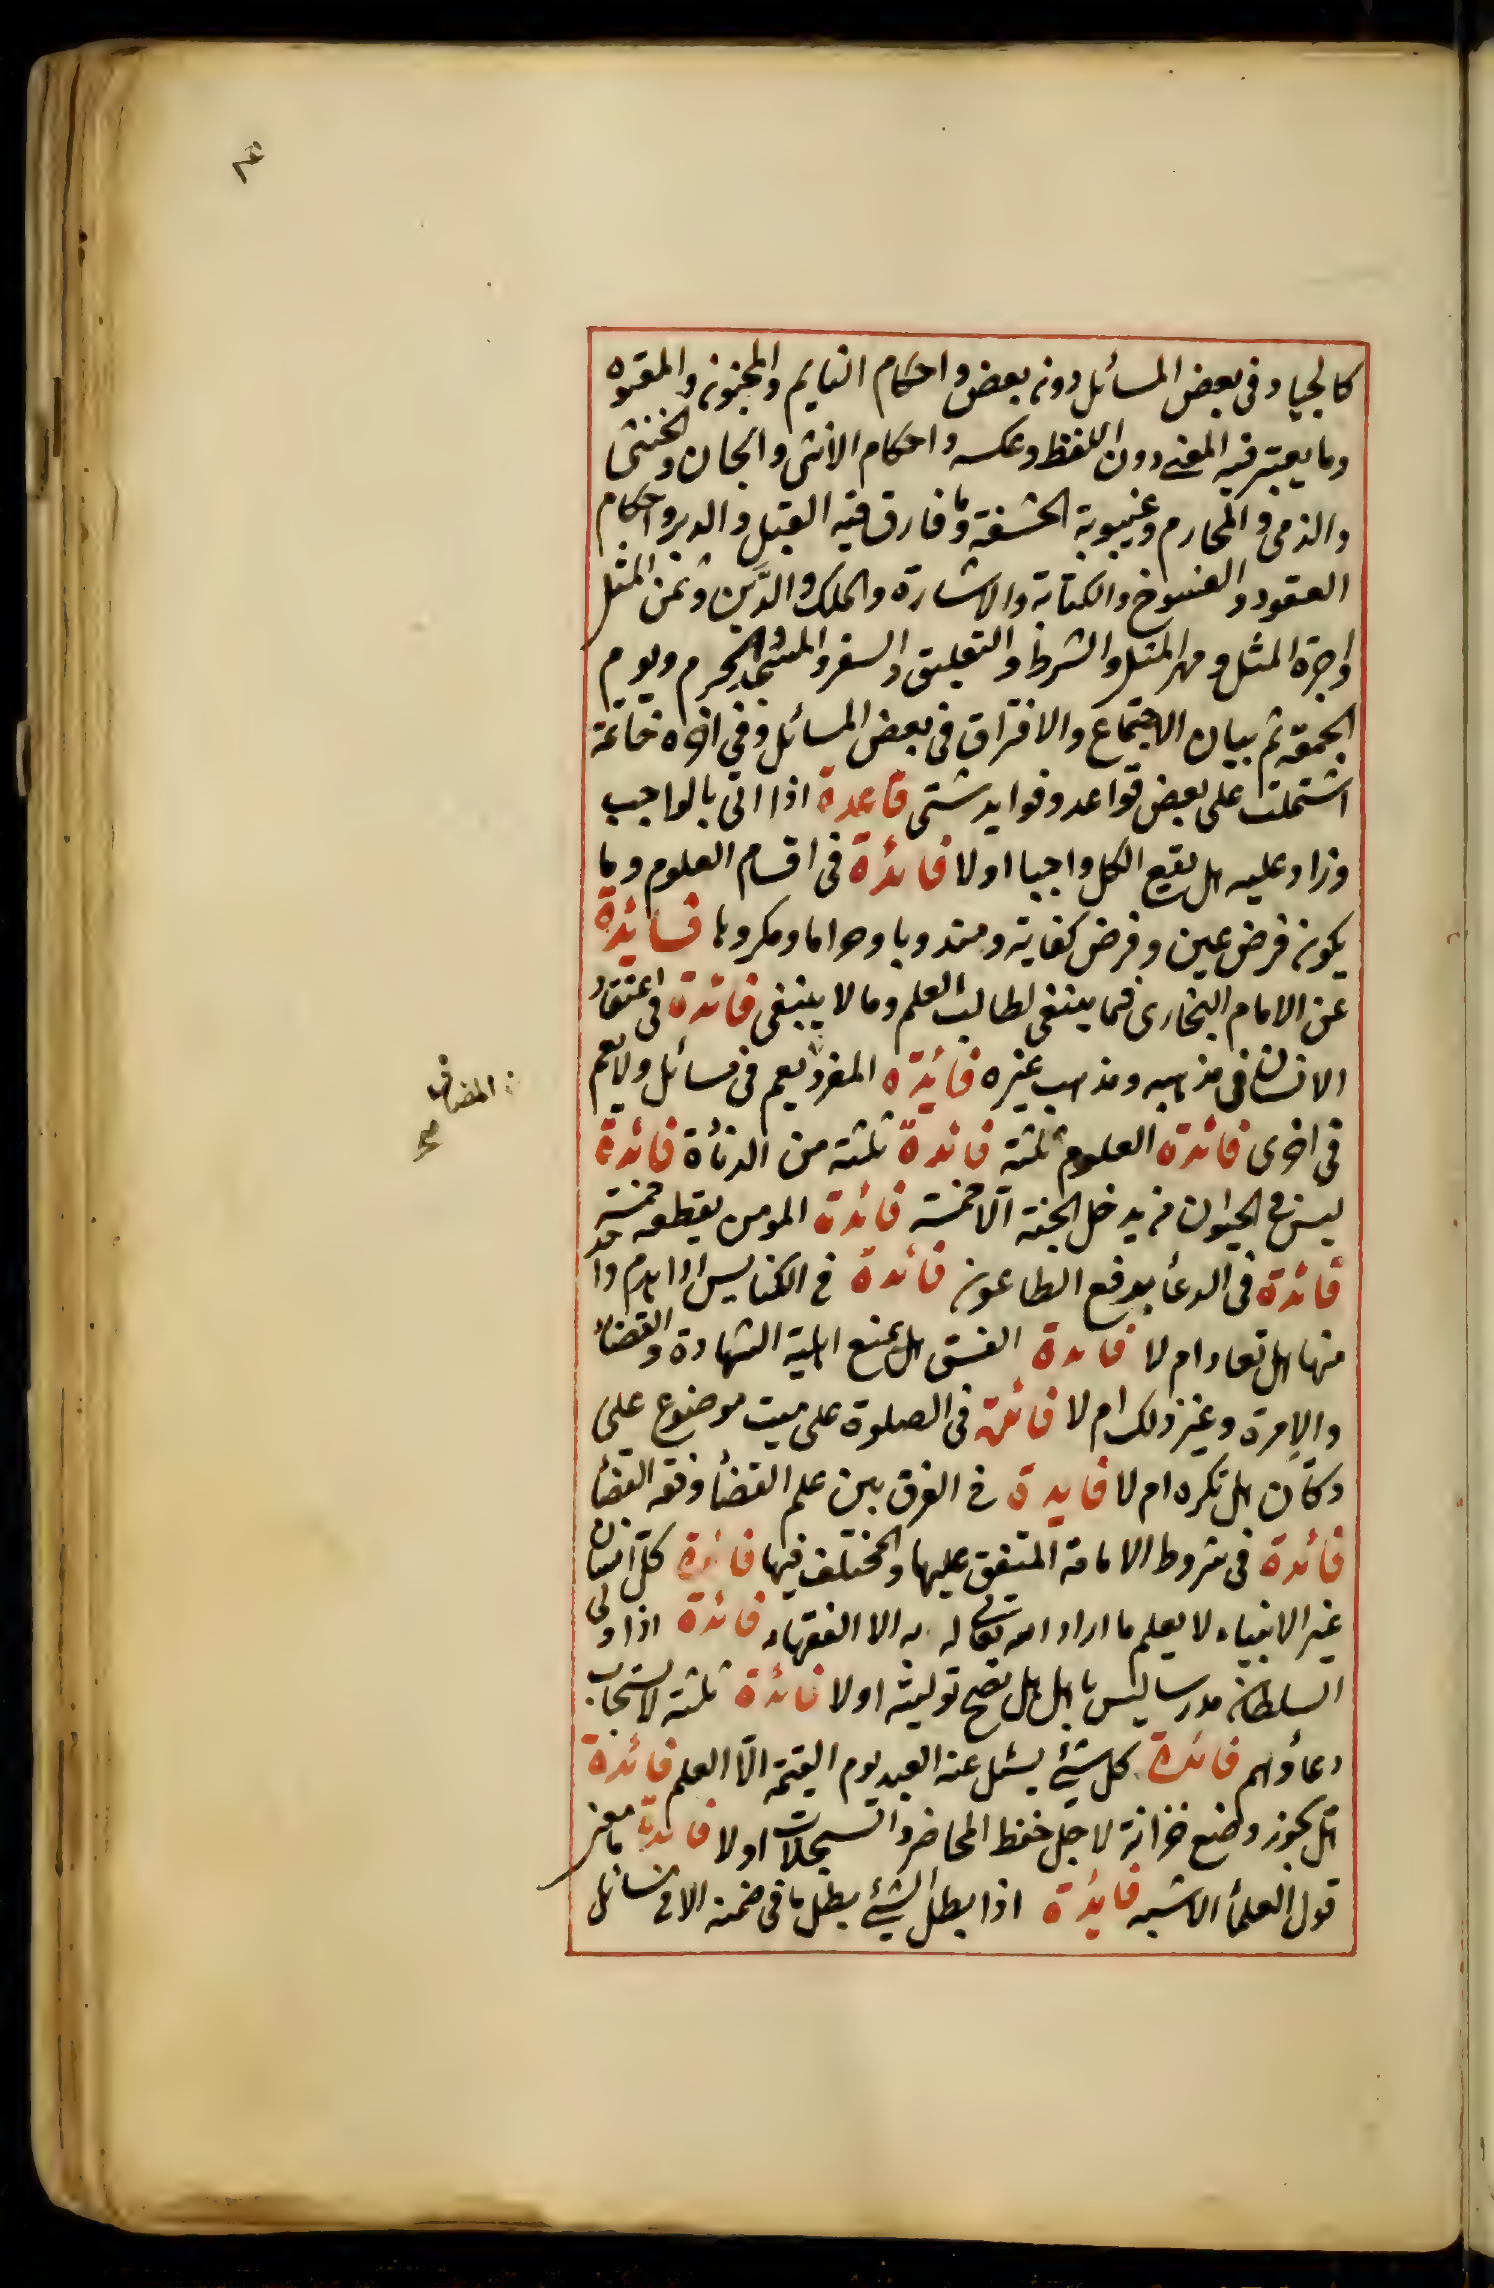 كالجياد فى بعض المسائل دون بعض واحكام النايم والمجنون والمعتوه
وما يعتبر فيه المعنى دون اللفظ وعكسه واحكام الانثى والجان والخنثى
والذمى والمحارم وغيبوبة الحشفة وما فارق فيه القبل والدبر واحكام
العقود والفسوخ والكتابة والاشارة والملك والدين وثمن المثل
واجرة المثل ومهر المثل والشرط والتعليق والسفر والمسجد والحرم ويوم
الجمعة ثم بيان الاجتماع والافتراق فى بعض المسائل وفى اخره خاتمة
اشتملت على بعض قواعد وفوايد شتى قاعدة اذا اتى بالواجب
وزاد عليه هل يقع الكل واجبا اولا فائدة فى اقسام العلوم وما
يكون فرض عين وفرض كفاية ومندوبا وحراما ومكروها فائدة
عن الامام البخارى فيما ينبغى لطالب العلم وما لا ينبغى فائدة فى اعتقاد
الانسان فى مذهبه ومذهب غيره فائدة المفرد يعم فى مسائل ولا يعم
فى اخرى فائدة العلوم ثلثة فائدة ثلثة من الدنأة فائدة
ليس فى الحيوان من يدخل الجنة الا خمسة فائدة المومن يقطعه خمسة
فائدة فى الدعأ برفع الطاعون فائدة فى الكنايس اذا هدم واحد
منها هل تعاد ام لا فائدة الفسق هل يمنع اهلية الشهادة والقضأ
والامرة وغير ذلك ام لا فائدة فى الصلوة على ميت موضوع على
دكان هل تكره ام لا فايدة فى الفرق بين علم القضأ وفقه القضأ
فائدة فى شروط الامامة المتفق عليها والمختلف فيها فائدة كل انسان
غير الانبياء لا يعلم ما اراد الله تعالى له به الا الفقهاء فائدة اذا ولى
السلطان مدرسا ليس باهل هل تصح توليته اولا فائدة ثلثة لا يستجاب
دعاؤهم فائدة كل شيئ يسئل عنه العبد يوم القيمة الا العلم فائدة
هل يجوز وضع خزانة لاجل حفظ المحاضر والسجلات اولا فائدة ما معنى
قول العلمأ الاشبه فايدة اذا بطل الشيئ بطل ما فى ضمنه الا فى مسائل
المضاف
صح